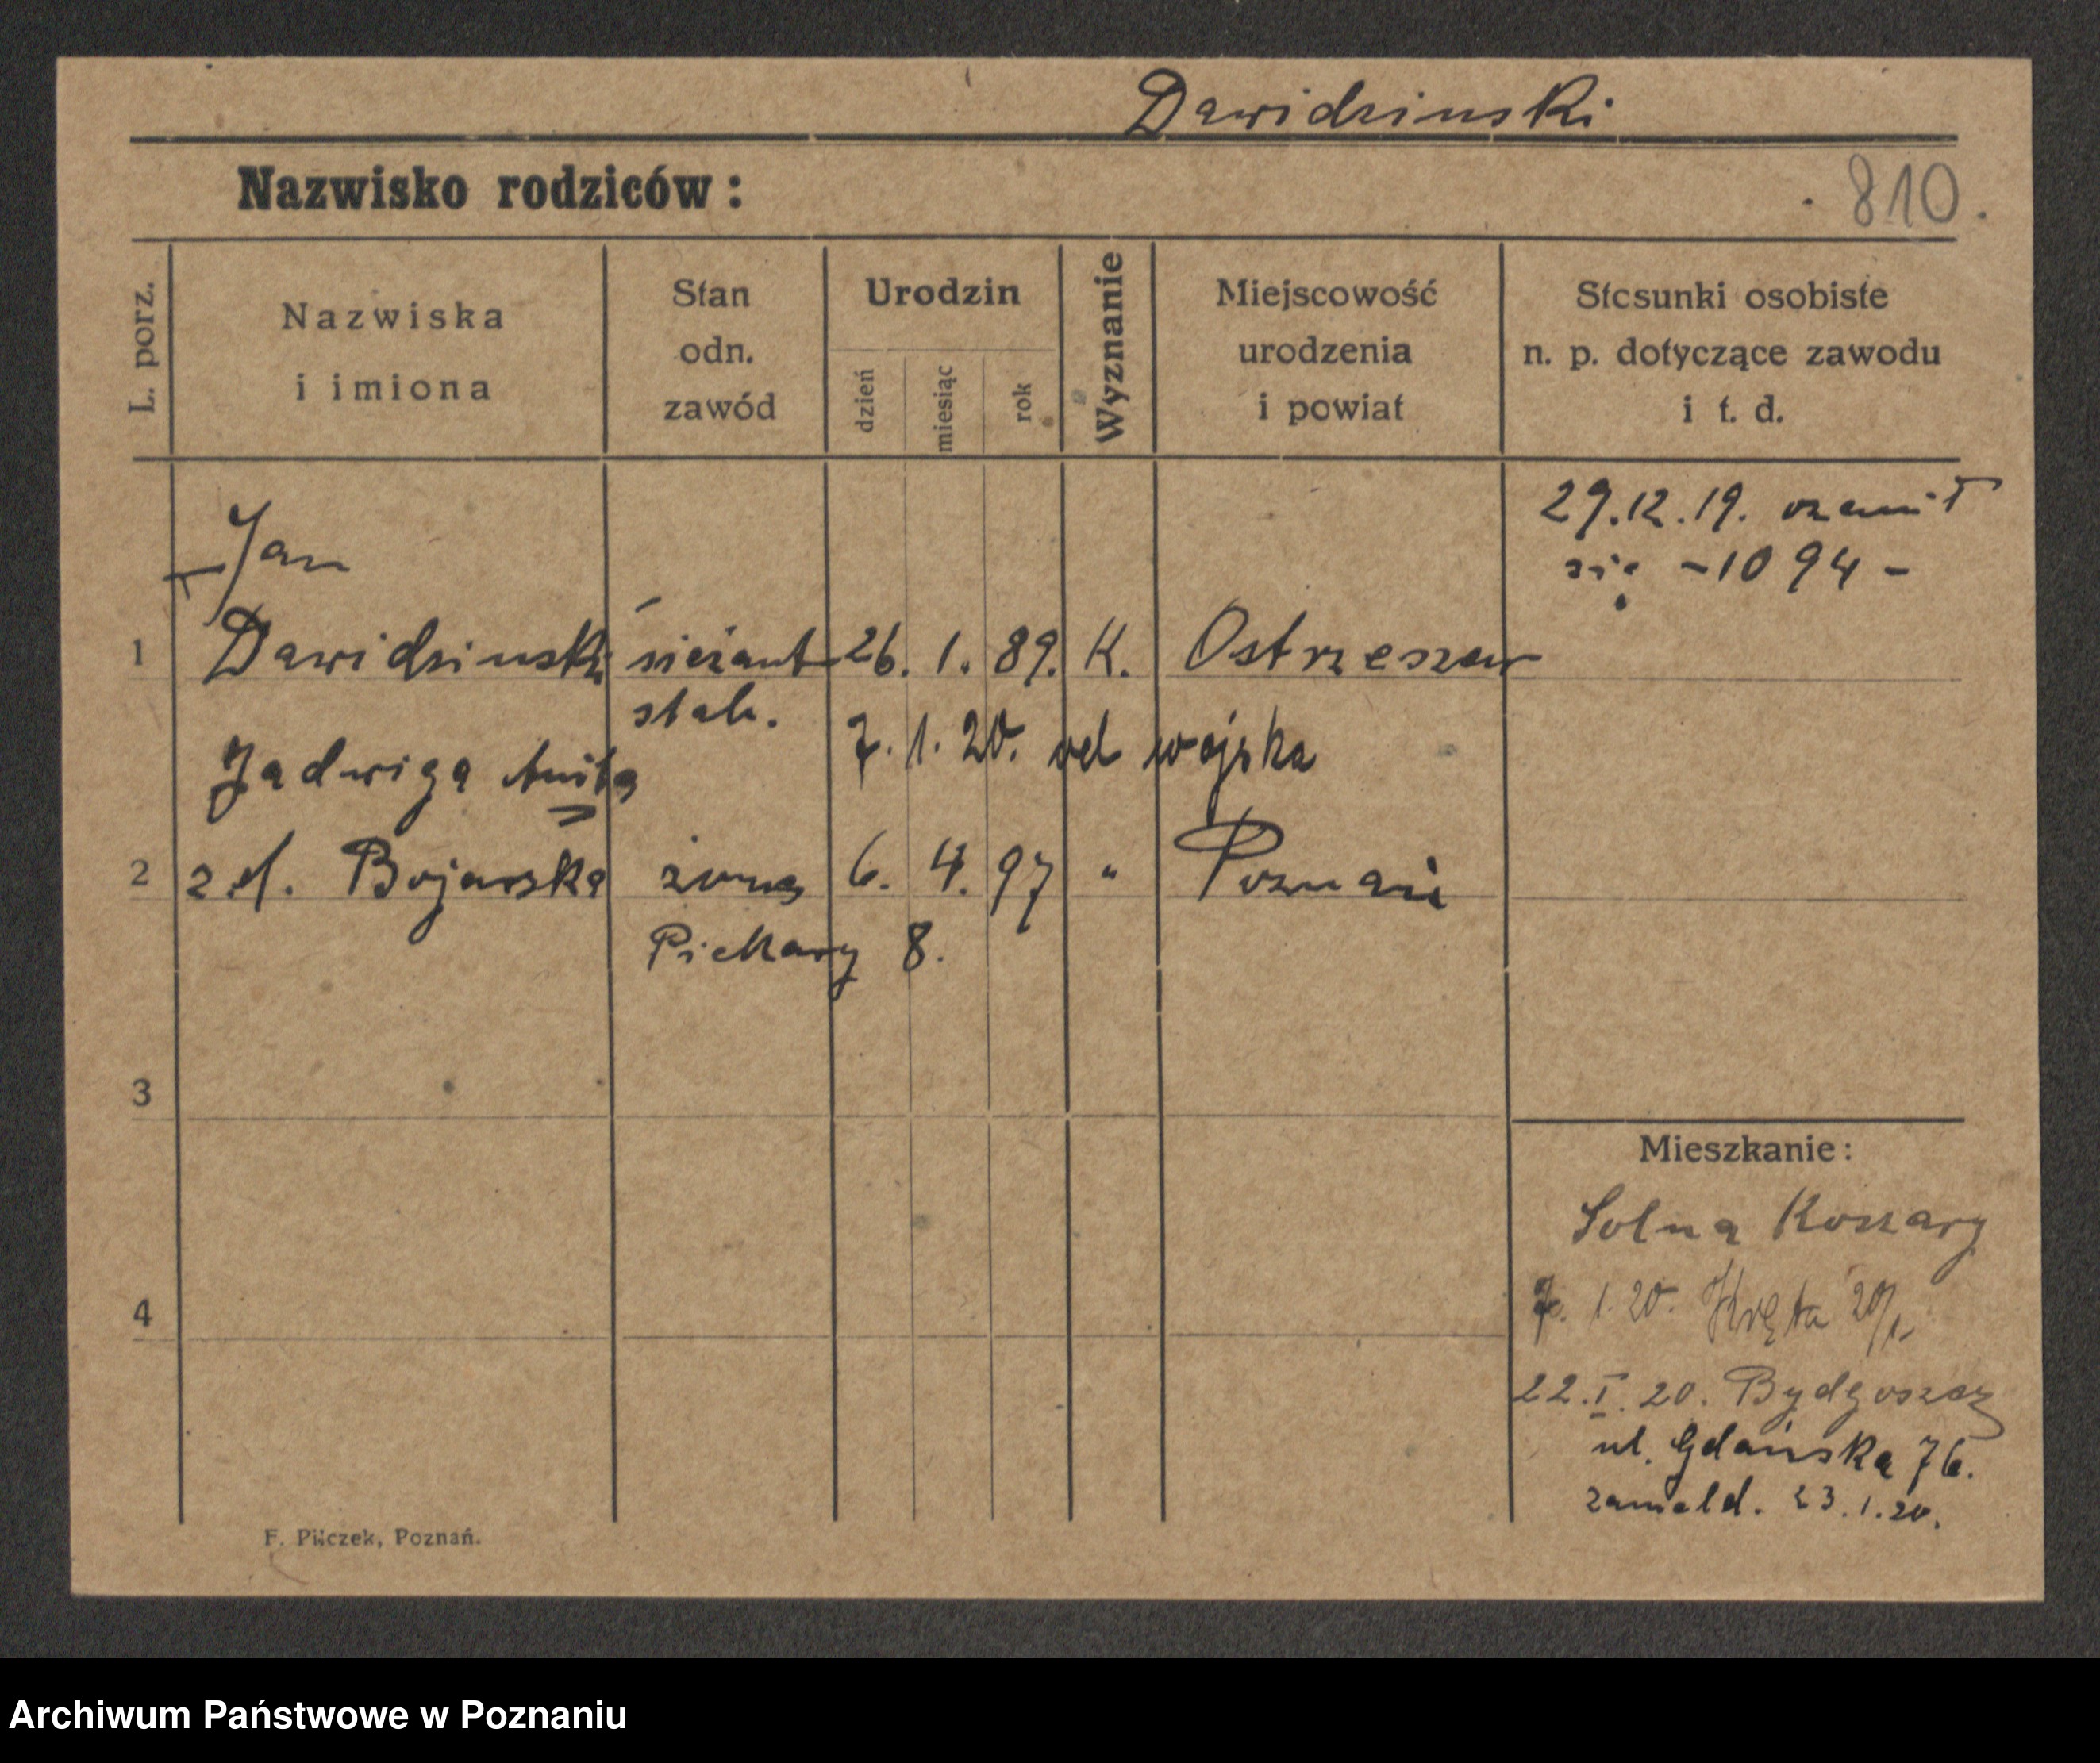 Dawidzinski
Nazwisko rodziców:
810.
L. porz.
Nazwiska
i imiona
Stan
odn.
zawód
Urodzin
dzień
miesiąc
rok
Wyznanie
Miejscowość
urodzenia
i powiat
Stosunki osobiste
n. p. dotyczące zawodu
i t. d.
29.12.19. ożenił
się -1094-
Jan
1 Dawidzinski sierżant 26. 1. 89. K. Ostrzeszow
stab.
7. 1. 20. od wojska
Jadwiga Anita
2 z d. Bojarska żona 6. 4. 97 " Poznań
Piekary 8.
3
4
Mieszkanie:
Solna Koszary
7. 1. 20. Kręta
22.I.20. Bydgoszcz
ul. Gdańska 76.
zameld. 23.1.20.
F. Pilczek, Poznań.
Archiwum Państwowe w Poznaniu